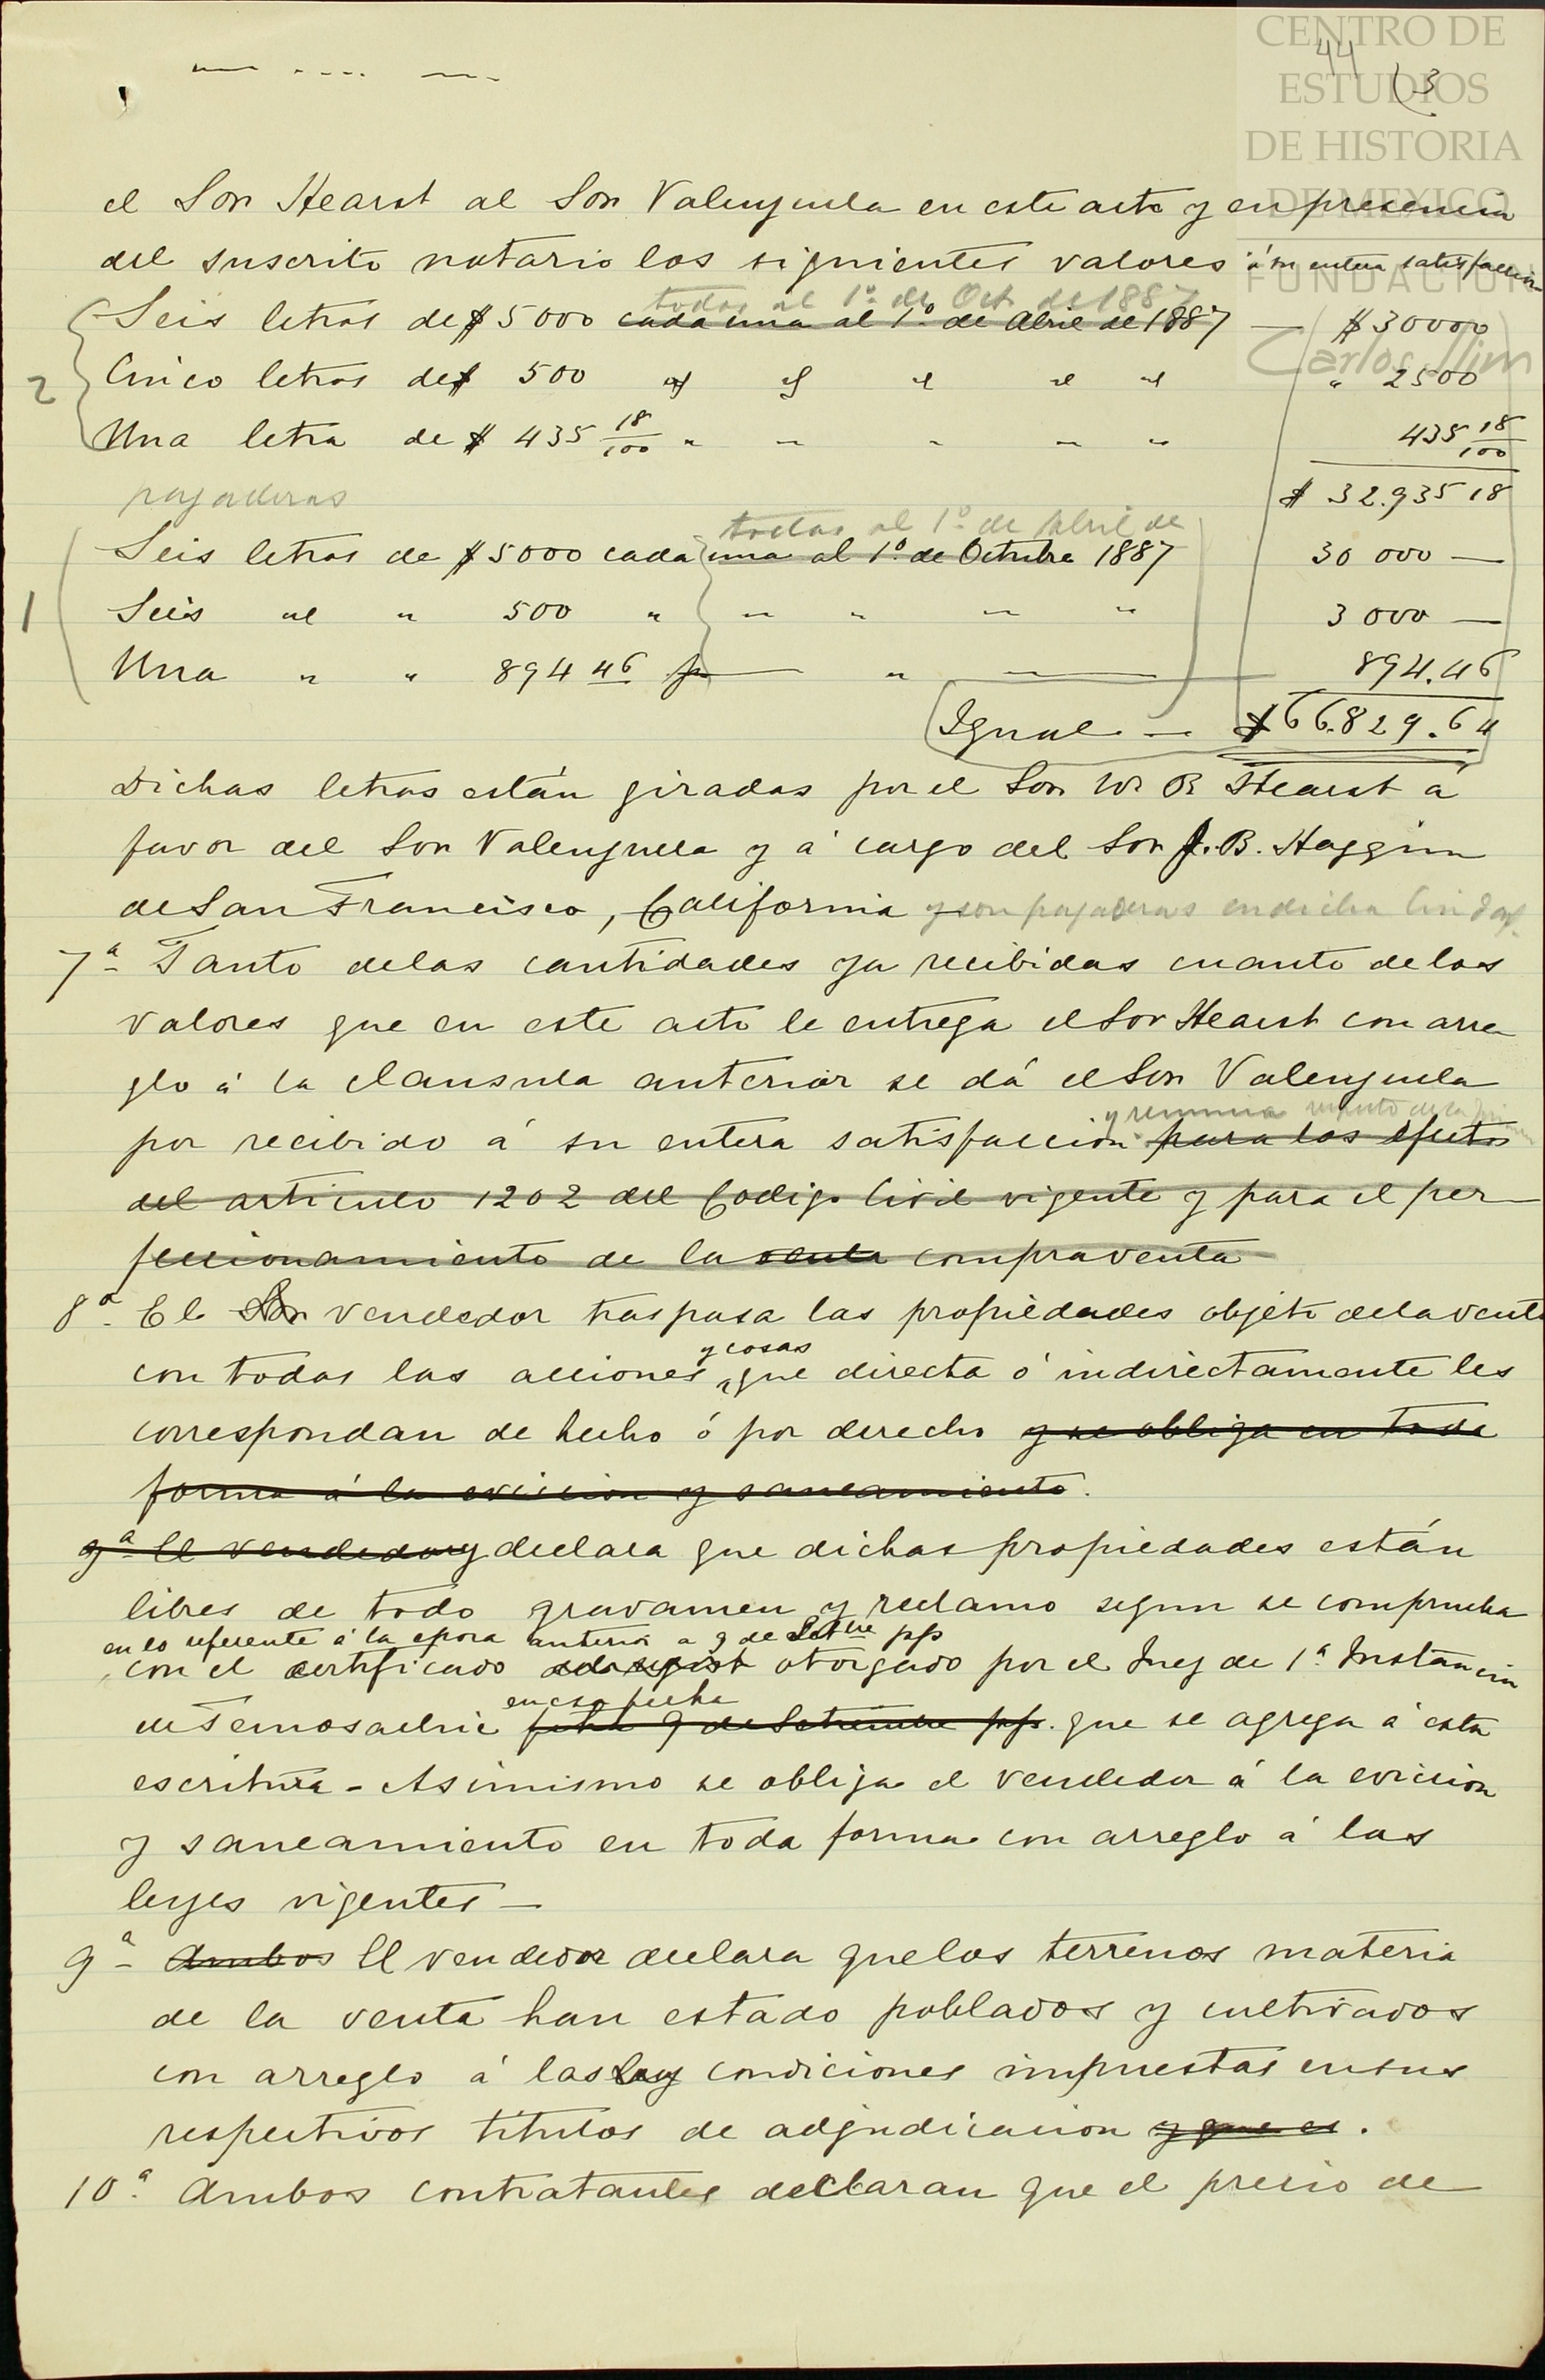 CENTRO DE
ESTUDIOS
DE HISTORIA
DE MEXICO
FUNDACION
Carlos Slim
44
(3
el Sor Hearst al Sor Valenzuela en este acto y en presencia
del suscrito notario los siguientes valores á su entera satisfaccion
todas al 1º de Oct. de 1887
Seis letras de $ 5000 cada una al 1º de Abril de 1887 — $ 30000
2 Cinco letras de $ 500 " " " " " " 2500
Una letra de $ 435 18/100 " " " " " 435 18/100
pagaderas $ 32.935 18
todas al 1º de Abril de
Seis letras de $ 5000 cada una al 1º de Octubre 1887 30 000 —
1 Seis " " 500 " " " " " 3 000 —
Una " " 894 46 " 894.46
Igual — $ 66.829.64
Dichas letras están giradas por el Sor W R Hearst á
favor del Sor Valenzuela y á cargo del Sor J. B. Haggin
de San Francisco, California y son pagaderas en dicha Ciudad.
7ª Tanto de las cantidades ya recibidas cuanto de los
valores que en este acto le entrega el Sor Hearst con arre
glo á la clausula anterior se dá el Sor Valenzuela
y renuncia
por recibido á su entera satisfaccion para los efectos
del articulo 1202 del Codigo Civil vigente y para el per—
feccionamiento de la venta compraventa
8ª El Sor vendedor traspasa las propiedades objeto de la venta
y cosas
con todas las acciones que directa ó indirectamente les
correspondan de hecho ó por derecho y se obliga en toda
forma á la eviccion y saneamiento.
9ª El vendedor y declara que dichas propiedades están
libres de todo gravamen y reclamo segun se comprueba
en lo referente á la epoca anterior a 9 de Setbre pp
con el certificado otorgado por el Juez de 1ª Instancia
en esa fecha
de Temosachic fecha 9 de Setiembre pp. que se agrega á esta
escritura - Asimismo se obliga el vendedor á la eviccion
y saneamiento en toda forma con arreglo á las
leyes vigentes —
9ª - Ambos El vendedor declara que los terrenos materia
de la venta han estado poblados y cultivados
con arreglo á las ley condiciones impuestas en sus
respectivos titulos de adjudicacion y que es.
10ª Ambos contratantes declaran que el precio de